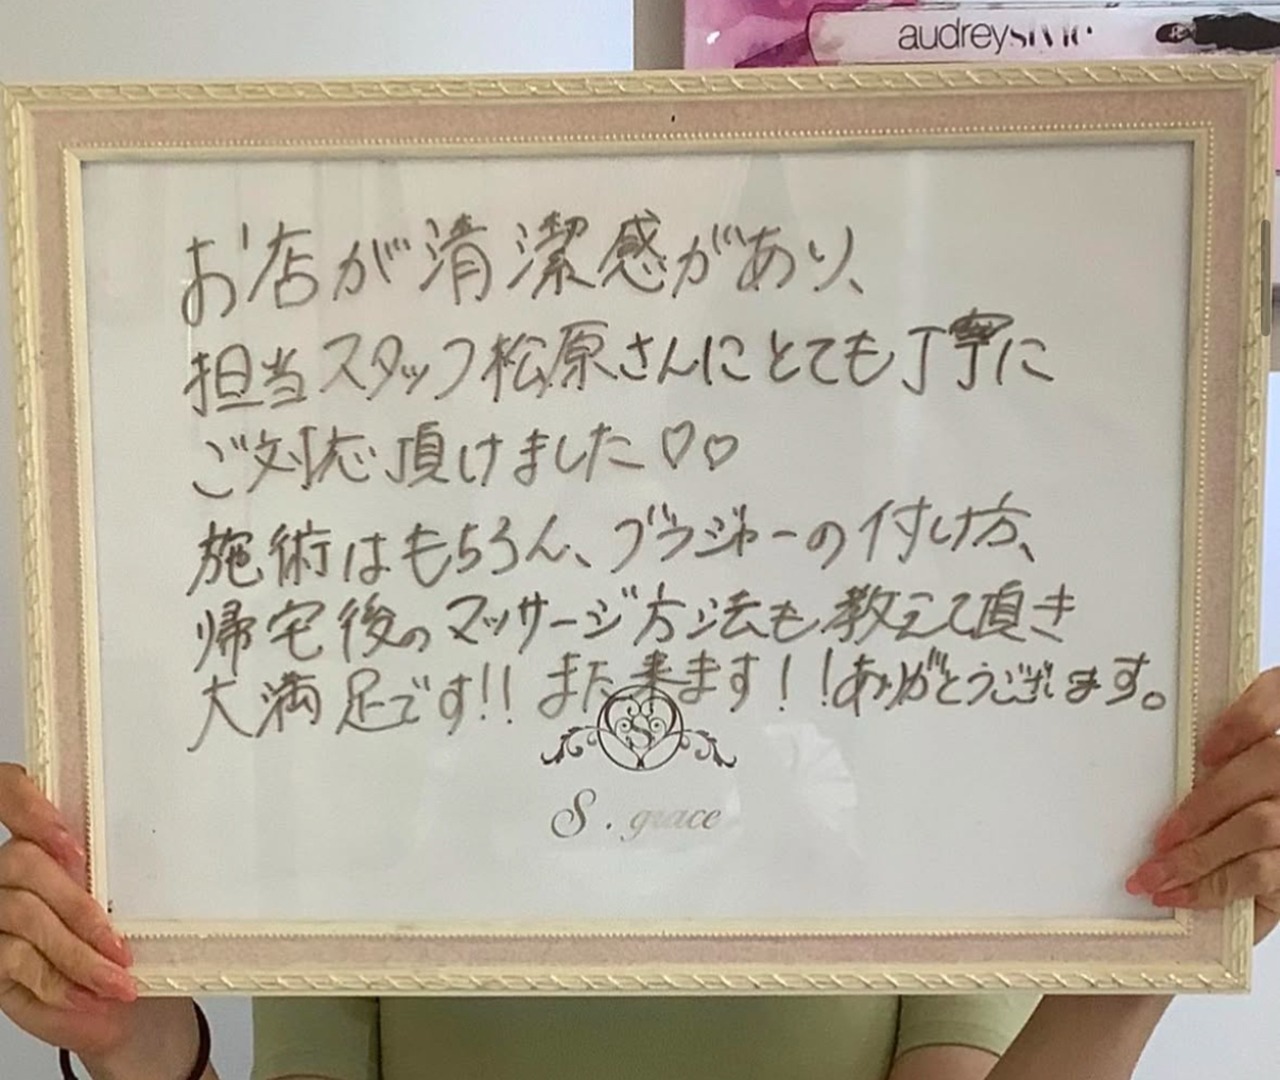 audreystyle
お店が清潔感があり、
担当スタッフ松原さんにとても丁寧に
ご対応頂けました♡♡
施術はもちろん、ブラジャーの付け方、
帰宅後のマッサージ方法も教えて頂き
大満足です!! また来ます!!ありがとうございます。
S
S.grace